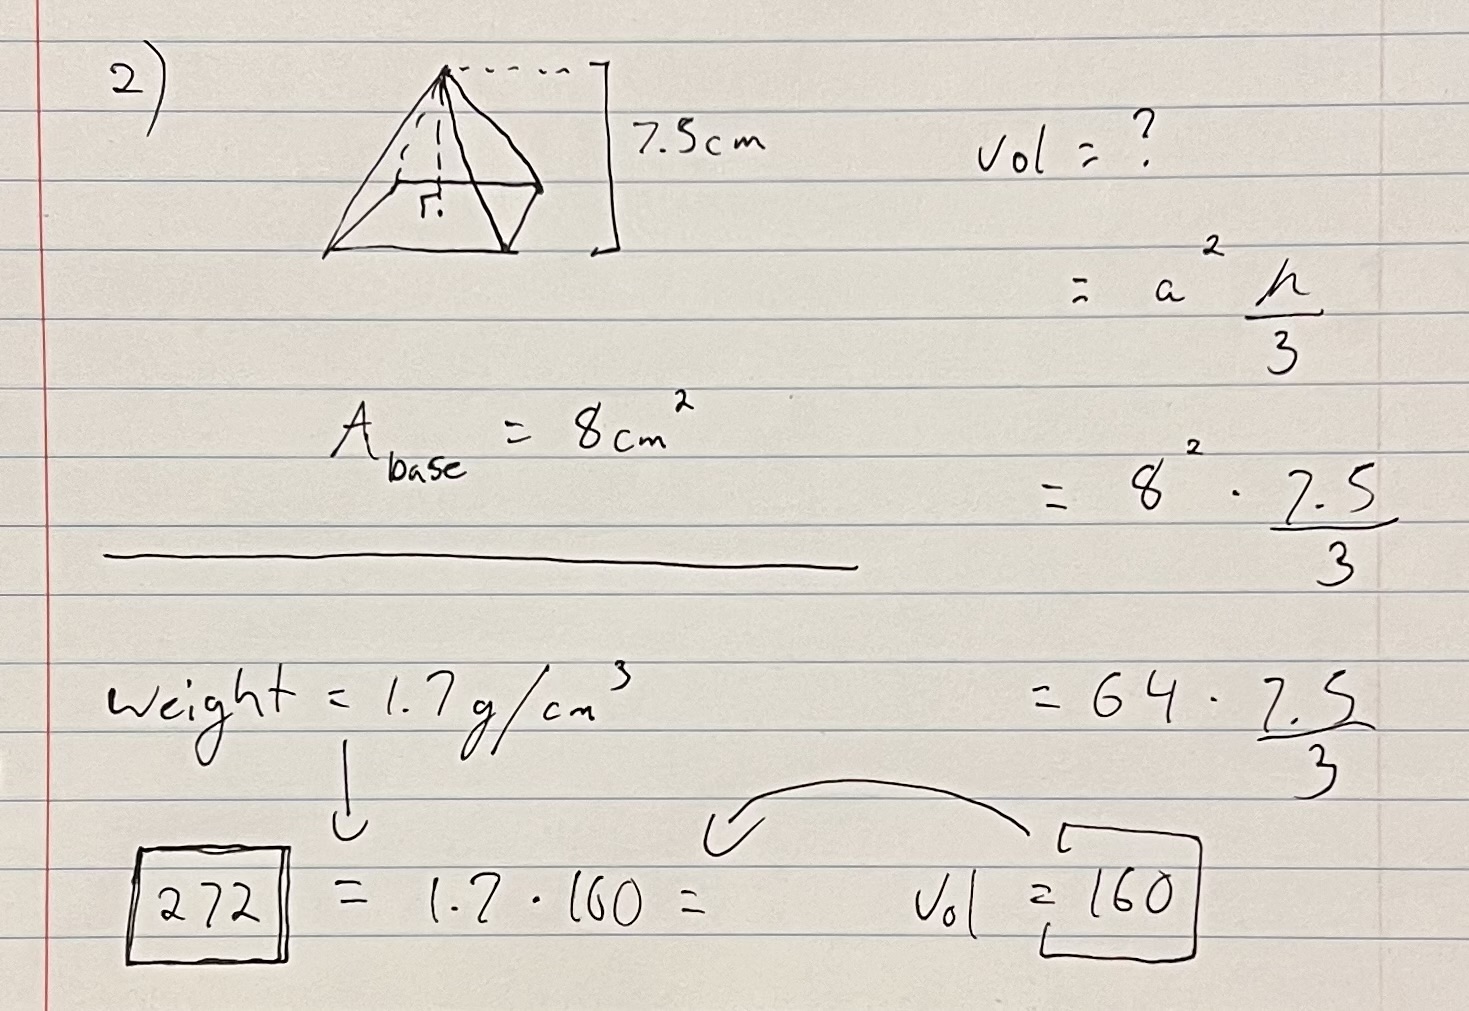 2)
7.5cm
Vol = ?
= a² h/3
A base = 8cm²
= 8² · 7.5/3
weight = 1.7g/cm³
= 64 · 7.5/3
272 = 1.7 · 160 =
Vol = 160